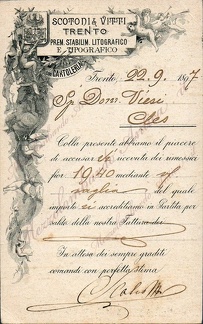 SCOTONI & VITTI
TRENTO
PREM. STABILIM. LITOGRAFICO
E TIPOGRAFICO
CARTOLERIA
Trento, 22. 9. 1897
Sp. Dom. Viesi
Cles
Colla presente abbiamo il piacere
di accusar ricevuta dei rimessici
fiorini 19.40 mediante
vaglia del quale
importo si accreditiamo in Partita per
saldo della nostra Fattura
In attesa dei sempre graditi
comandi con perfetta stima